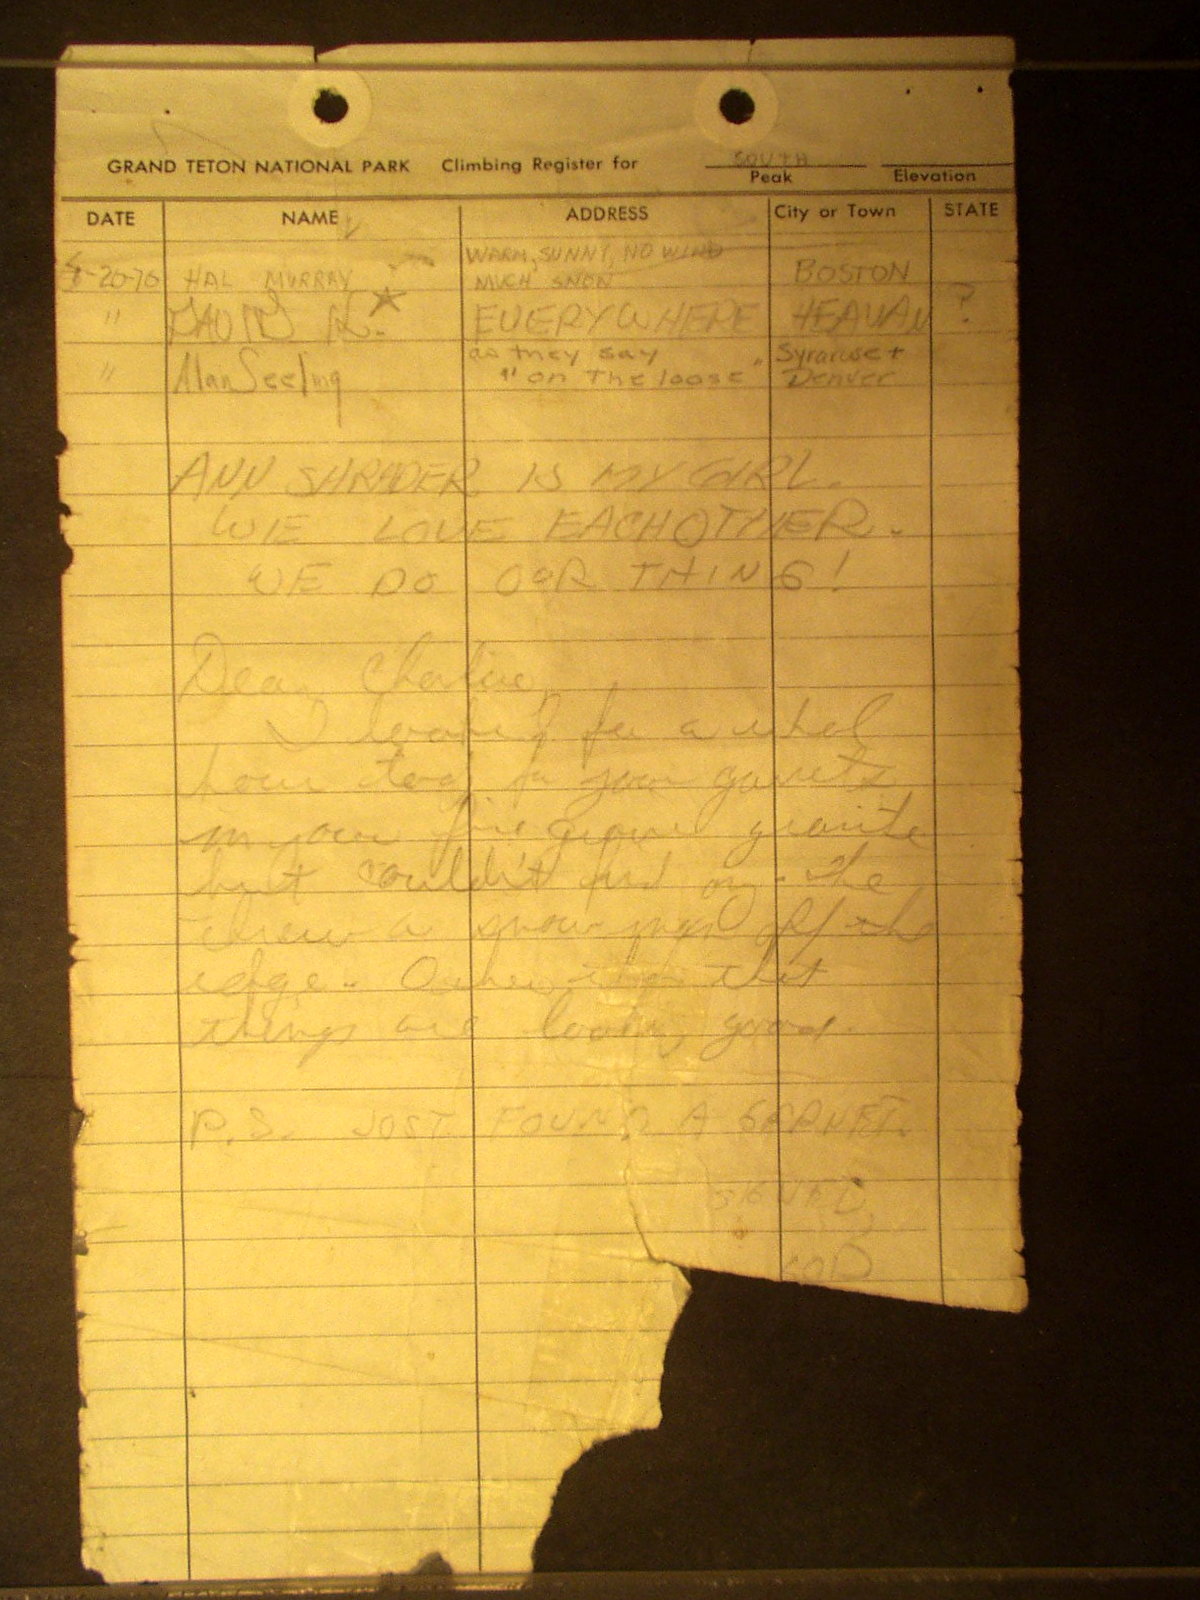 GRAND TETON NATIONAL PARK Climbing Register for SOUTH
Peak Elevation
DATE NAME ADDRESS City or Town STATE
WARM, SUNNY, NO WIND
-20-70 HAL MURRAY MUCH SNOW BOSTON
" DAVID R. EVERYWHERE HEAVAN ?
as they say Syracuse +
" Alan Seeling "on The loose" Denver
ANN SHRADER IS MY GIRL.
WE LOVE EACHOTHER.
WE DO OUR THING!
Dear Charlie,
I looked for a whol
hour for your garnets
in your fine granite
but couldn't find any. The
a snow off the
edge. Other than that
things are looking good.
P.S. JUST FOUND A GARNET.
SIGNED,
GOD